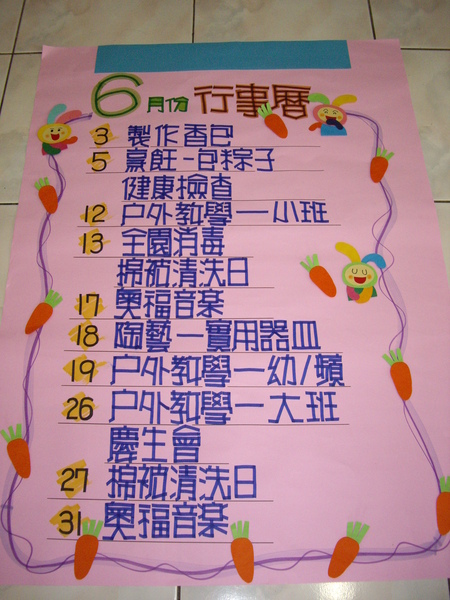 6月份 行事曆
3 製作香包
5 烹飪-包粽子
健康檢查
12 户外教學—小班
13 全園消毒
棉被清洗日
17 奧福音楽
18 陶藝—實用器皿
19 户外教學—幼/蘋
26 户外教學—大班
慶生會
27 棉被清洗日
31 奧福音楽